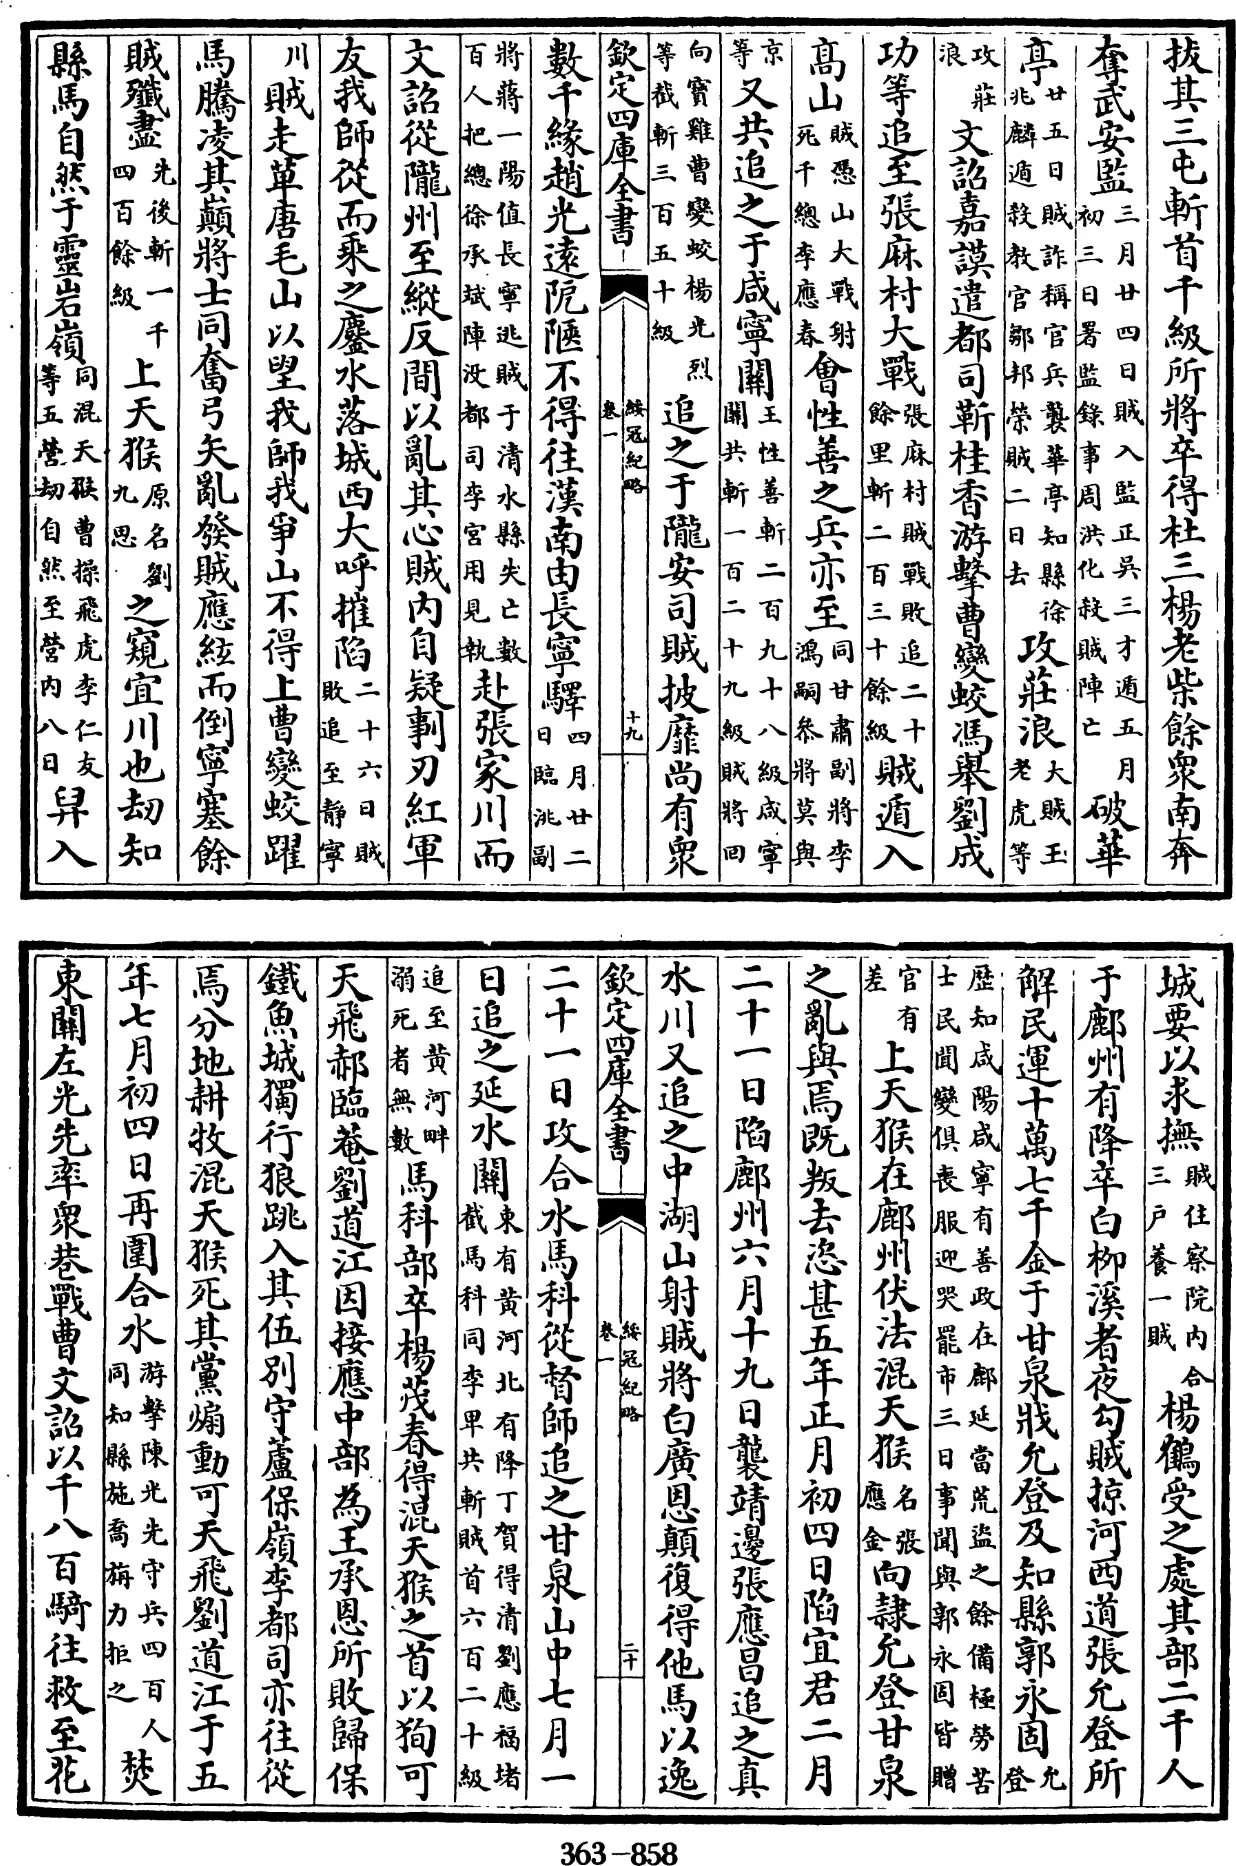 拔其三屯斬首千級所將卒得杜三楊老柴餘衆南奔
奪武安監三月廿四日賊入監正吳三才遁五月初三日署監錄事周洪化殺賊陣亡破華
亭廿五日賊詐稱官兵襲華亭知縣徐兆麟遁殺教官鄒邦榮賊二日去攻莊浪大賊玉老虎等
攻莊浪文詔嘉謨遣都司靳桂香游擊曹變蛟馮舉劉成
功等追至張麻村大戰張麻村賊戰敗追二十餘里斬二百三十餘級賊遁入
高山賊憑山大戰射死千總李應春會性善之兵亦至同甘肅副將李鴻嗣叅將莫與
京等又共追之于咸寧關王性善斬二百九十八級咸寧關共斬一百二十九級賊將回
向寶雞曹變蛟楊光烈等截斬三百五十級追之于隴安司賊披靡尚有衆
欽定四庫全書 綏寇紀略 卷一 十九
數千緣趙光遠阨陿不得往漢南由長寧驛四月廿二日臨洮副
將蔣一陽值長寧逃賊于清水縣失亡數百人把總徐承斌陣没都司李宮用見執赴張家川而
文詔從隴州至縱反間以亂其心賊内自疑剚刃紅軍
友我師從而乘之鏖水落城西大呼摧陷二十六日賊敗追至静寧
川賊走草唐毛山以望我師我爭山不得上曹變蛟躍
馬騰凌其巔將士同奮弓矢亂發賊應絃而倒寧塞餘
賊殲盡先後斬一千四百餘級上天猴原名劉九思之窺宜川也刼知
縣馬自然于靈岩嶺同混天猴曹操飛虎李仁友等五營刼自然至營内八日舁入
城要以求撫賊住察院内合三户養一賊楊鶴受之處其部二千人
于鄜州有降卒白柳溪者夜勾賊掠河西道張允登所
解民運十萬七千金于甘泉戕允登及知縣郭永固允登
歴知咸陽咸寧有善政在鄜延當荒盜之餘備極勞苦士民聞變俱喪服迎哭罷市三日事聞與郭永固皆贈
官有差上天猴在鄜州伏法混天猴名張應金向隸允登甘泉
之亂與焉既叛去恣甚五年正月初四日陷宜君二月
二十一日陷鄜州六月十九日襲靖邊張應昌追之真
水川又追之中湖山射賊將白廣恩顛復得他馬以逸
欽定四庫全書 綏寇紀略 卷一 二十
二十一日攻合水馬科從督師追之甘泉山中七月一
日追之延水關東有黄河北有降丁賀得清劉應福堵截馬科同李卑共斬賊首六百二十級
追至黄河畔溺死者無數馬科部卒楊茂春得混天猴之首以狥可
天飛郝臨菴劉道江因接應中部為王承恩所敗歸保
鐵魚城獨行狼跳入其伍别守蘆保嶺李都司亦往從
焉分地耕牧混天猴死其黨煽動可天飛劉道江于五
年七月初四日再圍合水游擊陳光先守兵四百人同知縣施喬旃力拒之焚
東關左光先率衆巷戰曹文詔以千八百騎往救至花
363-858